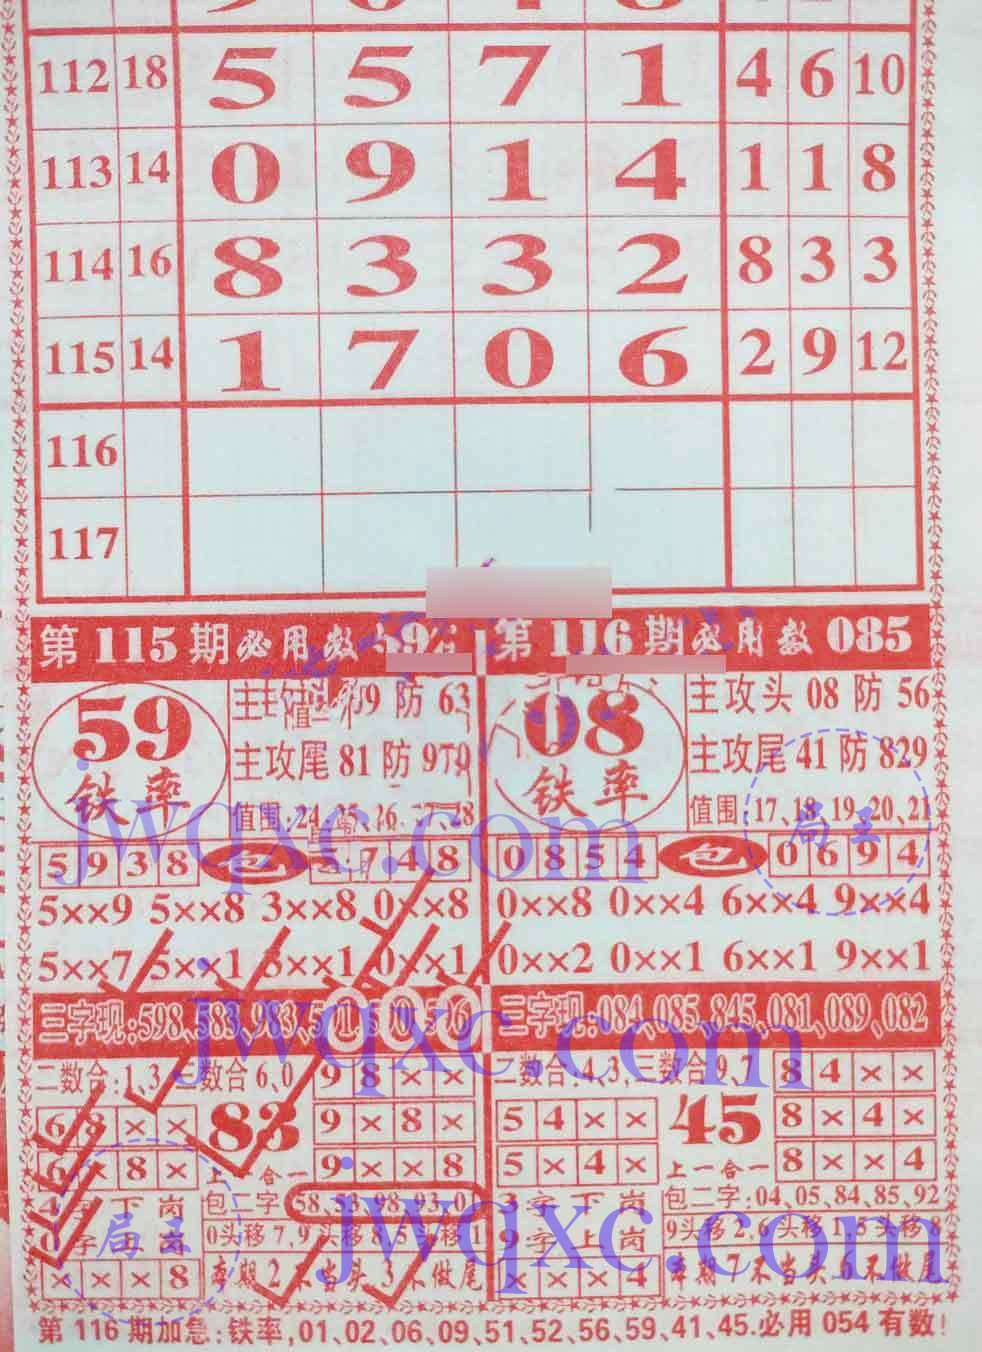 112 18 5 5 7 1 4 6 10
113 14 0 9 1 4 1 1 8
114 16 8 3 3 2 8 3 3
115 14 1 7 0 6 2 9 12
116
117
第115期必用数
第116期必用数 085
59
铁率
防 63
主攻尾 81 防 970
值围:24、25、26、27、28
08
铁率
主攻头 08 防 56
主攻尾 41 防 829
值围:17、18、19、20、21
5 9 3 8 包 7 4 8
0 8 5 4 包 0 6 9 4
5××9 5××8 3××8 0××8
0××8 0××4 6××4 9××4
5××7 5××1 3××1 0××1
0××2 0××1 6××1 9××1
三字现:598,583,983,
三字现:084,085,845,081,089,082
二数合:1,3,三数合6,0
9 8 × ×
6 8 × ×
83
9 × 8 ×
6 × 8 ×
上一合一
9 × × 8
字下岗
包二字:58,53,98,93,01
0字上岗
0头移7,9头移8,5头移1
× × × 8
本期2不当头3不做尾
二数合:4,3,三数合9,7
8 4 × ×
5 4 × ×
45
8 × 4 ×
5 × 4 ×
上一合一
8 × × 4
3字下岗
包二字:04,05,84,85,92
9字上岗
9头移2,6头移1,5头移8
× × × 4
本期7不当头6不做尾
第116期加急:铁率,01、02、06、09、51、52、56、59、41、45.必用054有数!
jwqxc.com
jwqxc.com
jwqxc.com
局王
局王